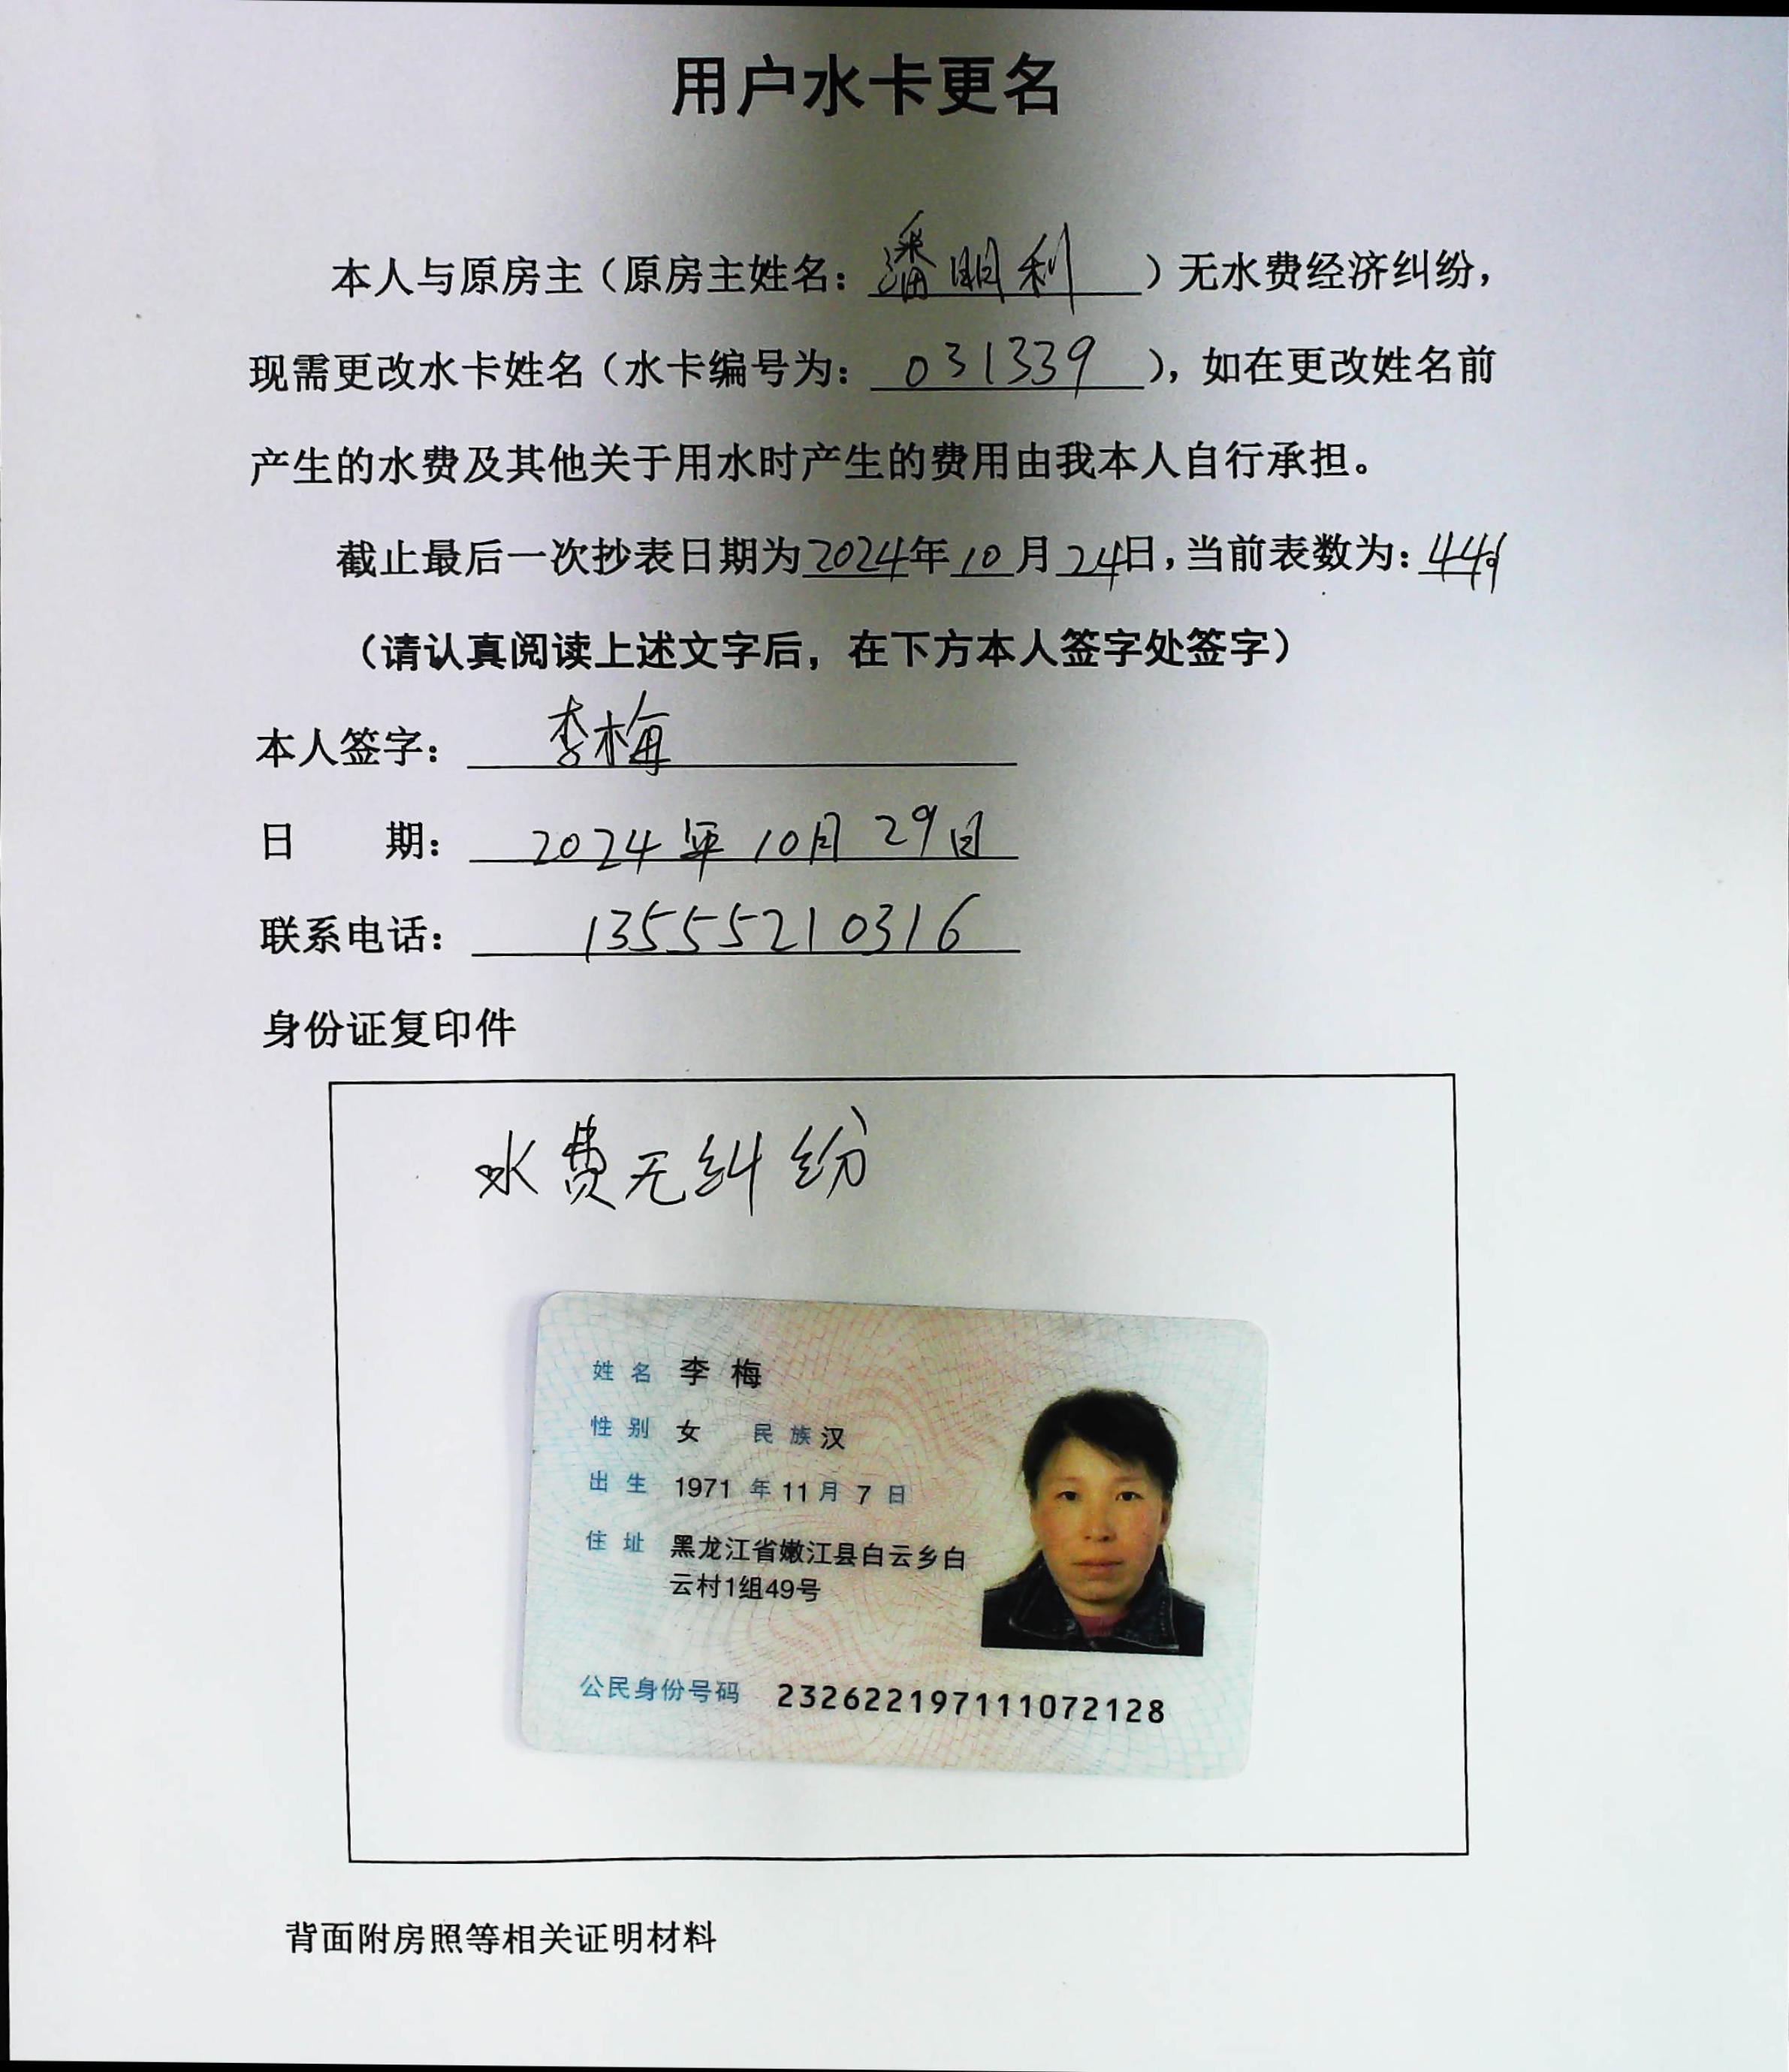 用户水卡更名
本人与原房主（原房主姓名：潘明利）无水费经济纠纷，
现需更改水卡姓名（水卡编号为：031339），如在更改姓名前
产生的水费及其他关于用水时产生的费用由我本人自行承担。
截止最后一次抄表日期为2024年10月24日，当前表数为：
（请认真阅读上述文字后，在下方本人签字处签字）
本人签字：李梅
日 期：2024年10月29日
联系电话：13555210316
身份证复印件
水费无纠纷
姓名 李梅
性别 女 民族 汉
出生 1971 年 11 月 7 日
住址 黑龙江省嫩江县白云乡白
云村1组49号
公民身份号码 232622197111072128
背面附房照等相关证明材料